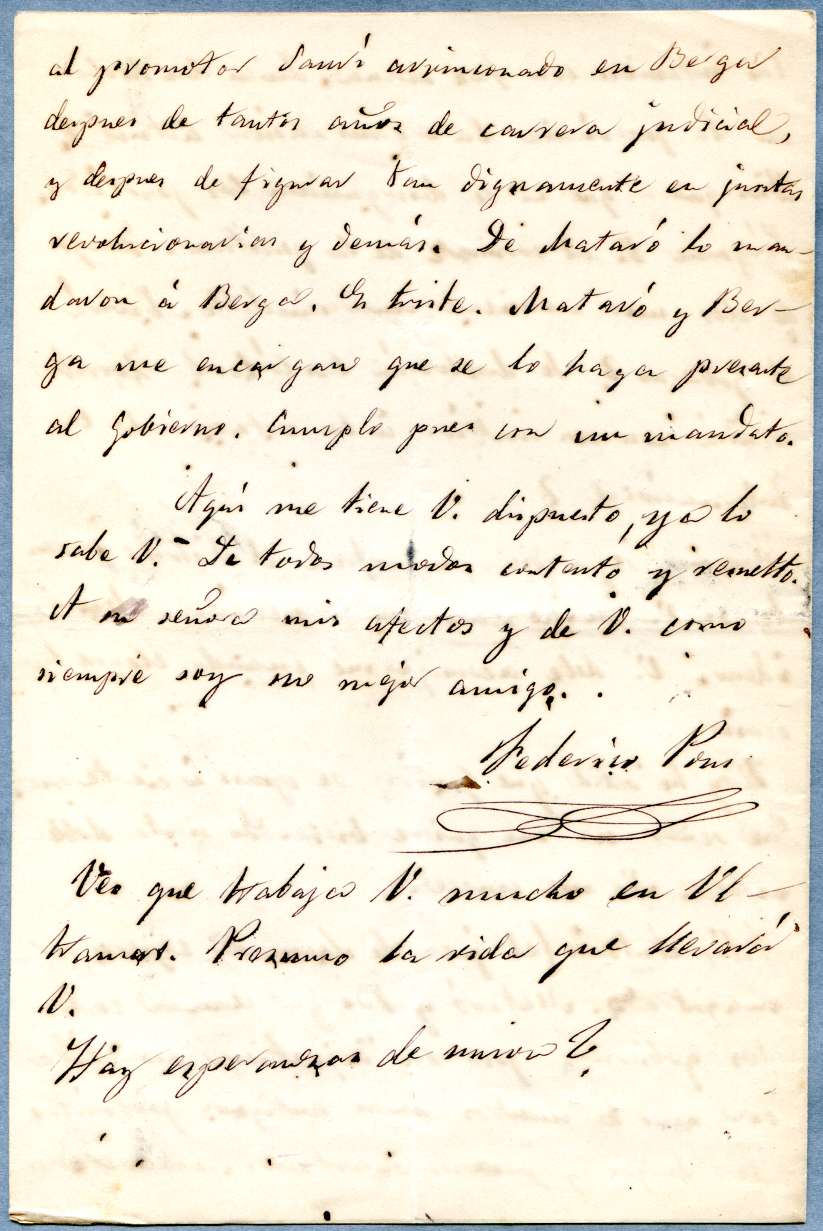 al promotor Saurí arrinconado en Berga
despues de tantos años de carrera judicial,
y despues de figurar tan dignamente en juntas
revolucionarias y demás. De Mataró lo man-
daron á Berga. Es triste. Mataró y Ber-
ga me encargan que se lo haga presente
al Gobierno. Cumplo pues con mi mandato.
Aquí me tiene V. dispuesto, ya lo
sabe V. De todos modos contento y resuelto.
A su señora mis afectos y de V. como
siempre soy su mejor amigo.
Federico Pons
Veo que trabaja V. mucho en Ul-
tramar. Presumo la vida que llevará
V.
Hay esperanzas de union?